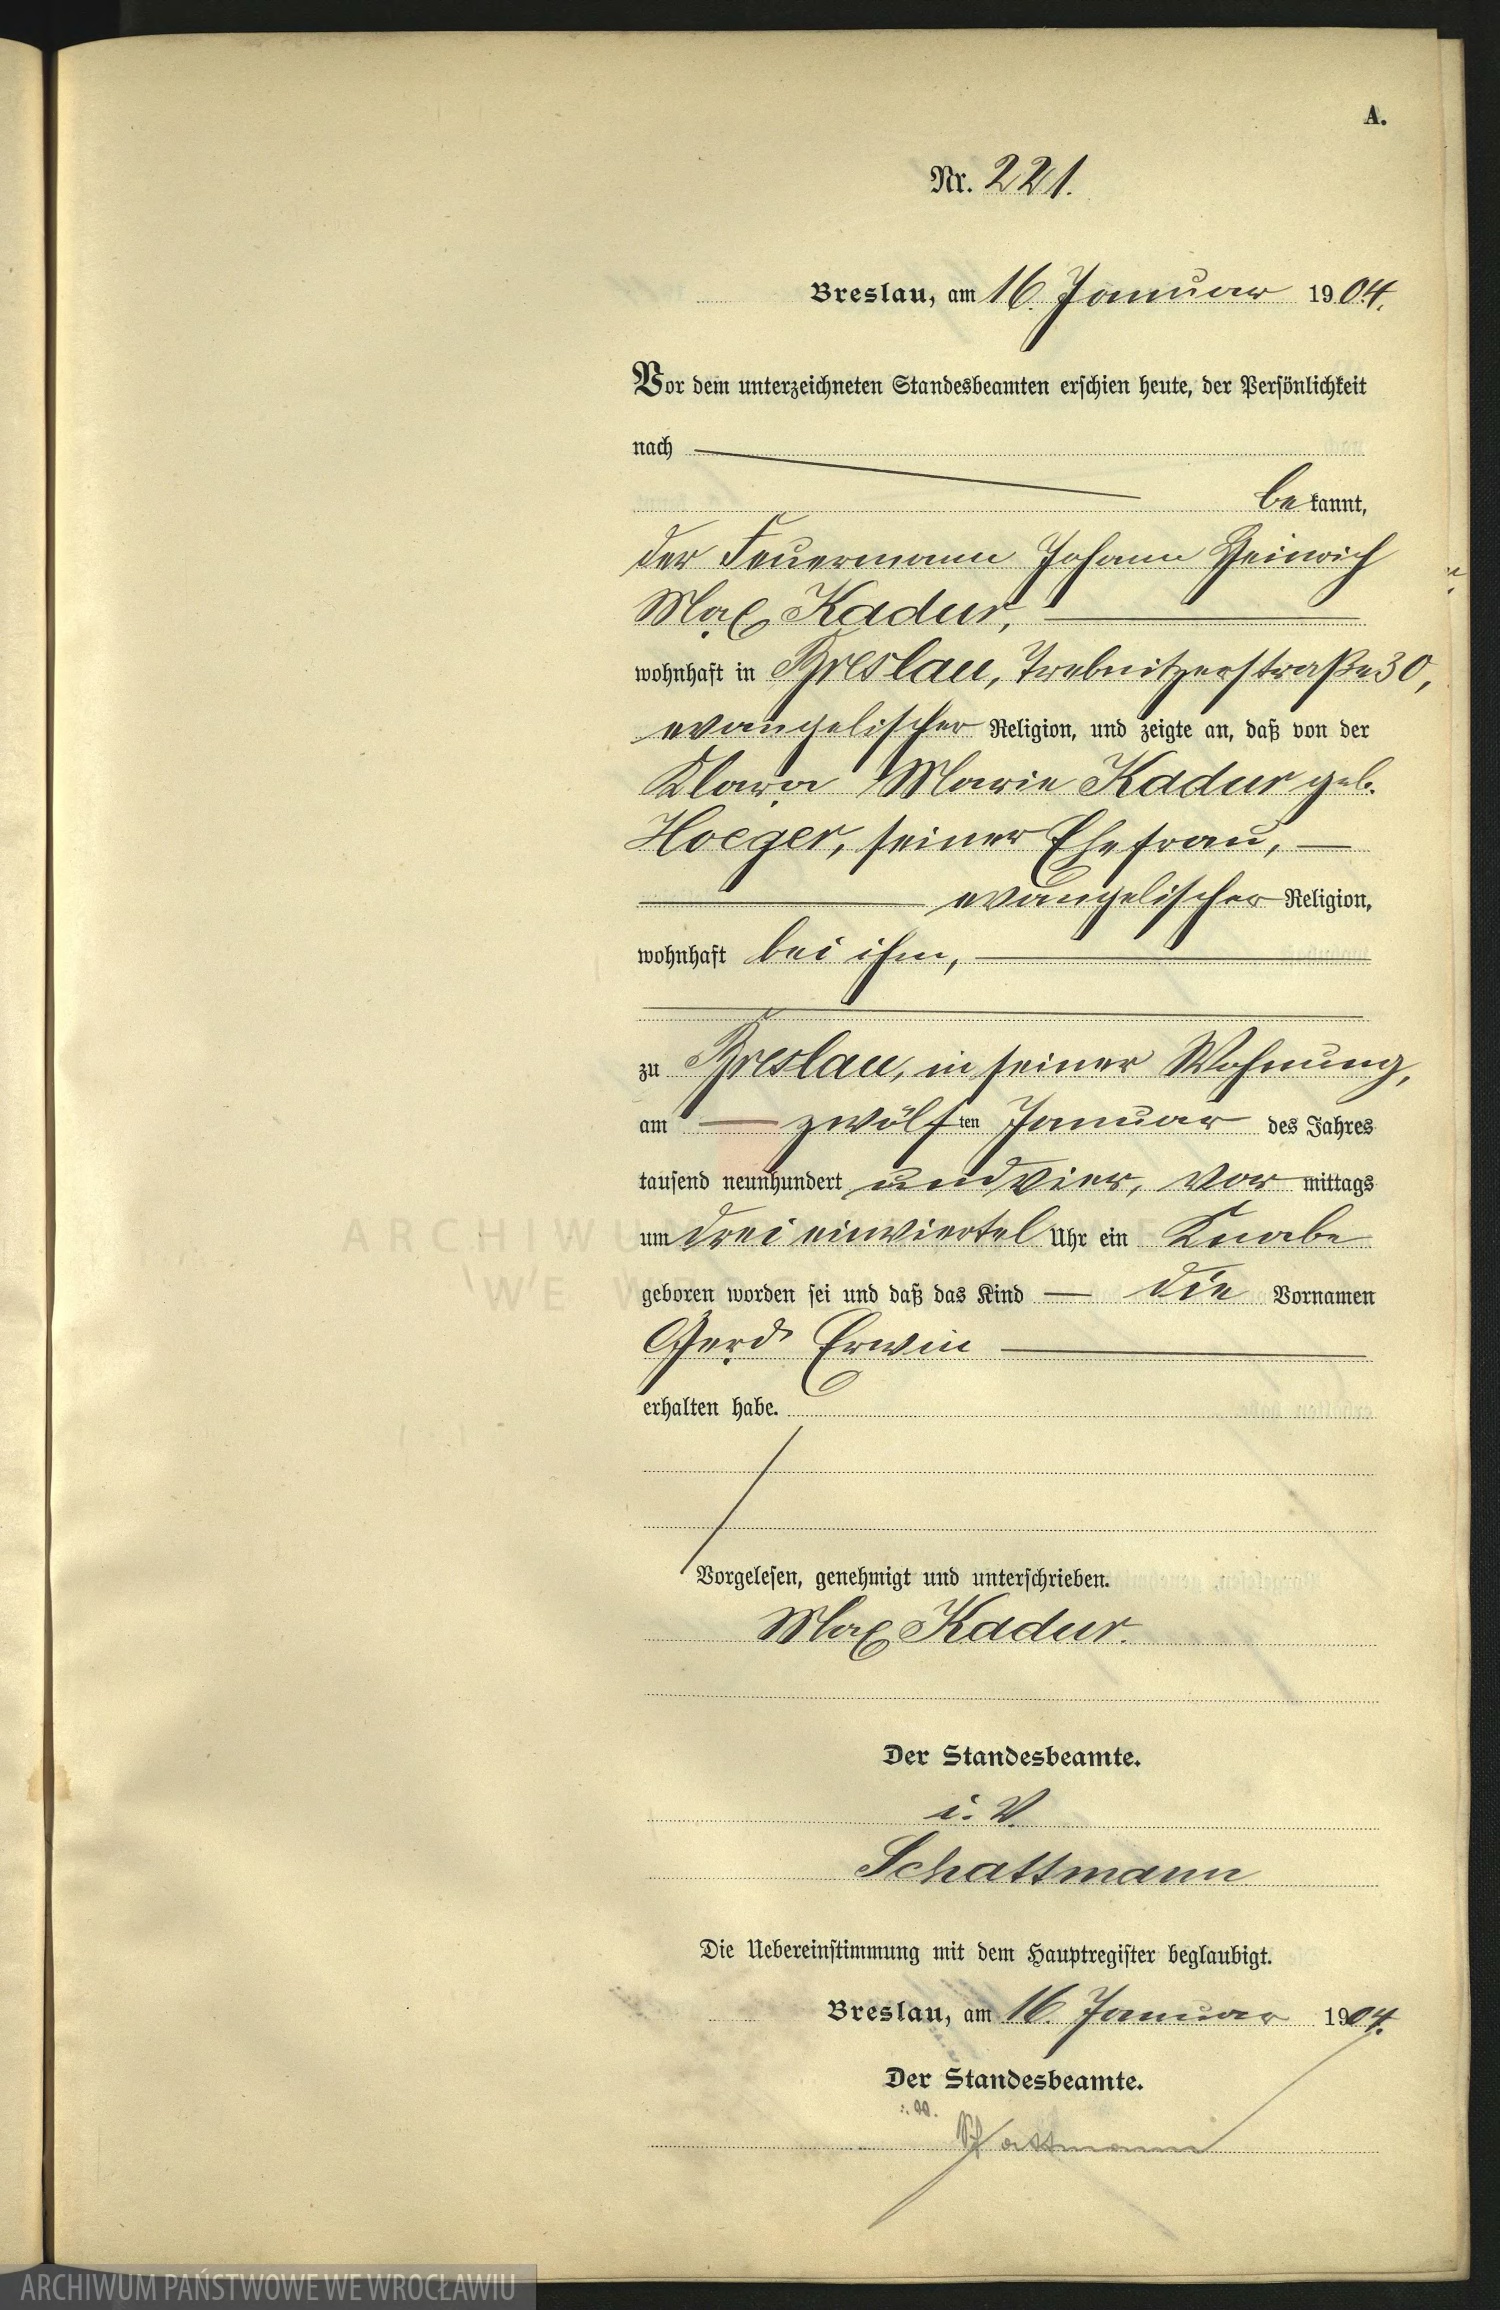 A.
Nr. 221.
Breslau, am 16. Januar 1904.
Vor dem unterzeichneten Standesbeamten erschien heute, der Persönlichkeit
nach
bekannt,
der Feuermann Johann Heinrich
Max Kadur,
wohnhaft in Breslau, Trebnitzerstraße 30,
evangelischer Religion, und zeigte an, daß von der
Klara Marie Kadur geb.
Hoeger, seiner Ehefrau,
evangelischer Religion,
wohnhaft bei ihm,
zu Breslau, in seiner Wohnung,
am zwölften Januar des Jahres
tausend neunhundert und vier, Vormittags
um drei einviertel Uhr ein Knabe
geboren worden sei und daß das Kind die Vornamen
Gerd Erwin
erhalten habe.
Vorgelesen, genehmigt und unterschrieben.
Max Kadur.
Der Standesbeamte.
i. V.
Schattmann
Die Uebereinstimmung mit dem Hauptregister beglaubigt.
Breslau, am 16. Januar 1904.
Der Standesbeamte.
i. V.
Schattmann
ARCHIWUM PAŃSTWOWE WE WROCŁAWIU